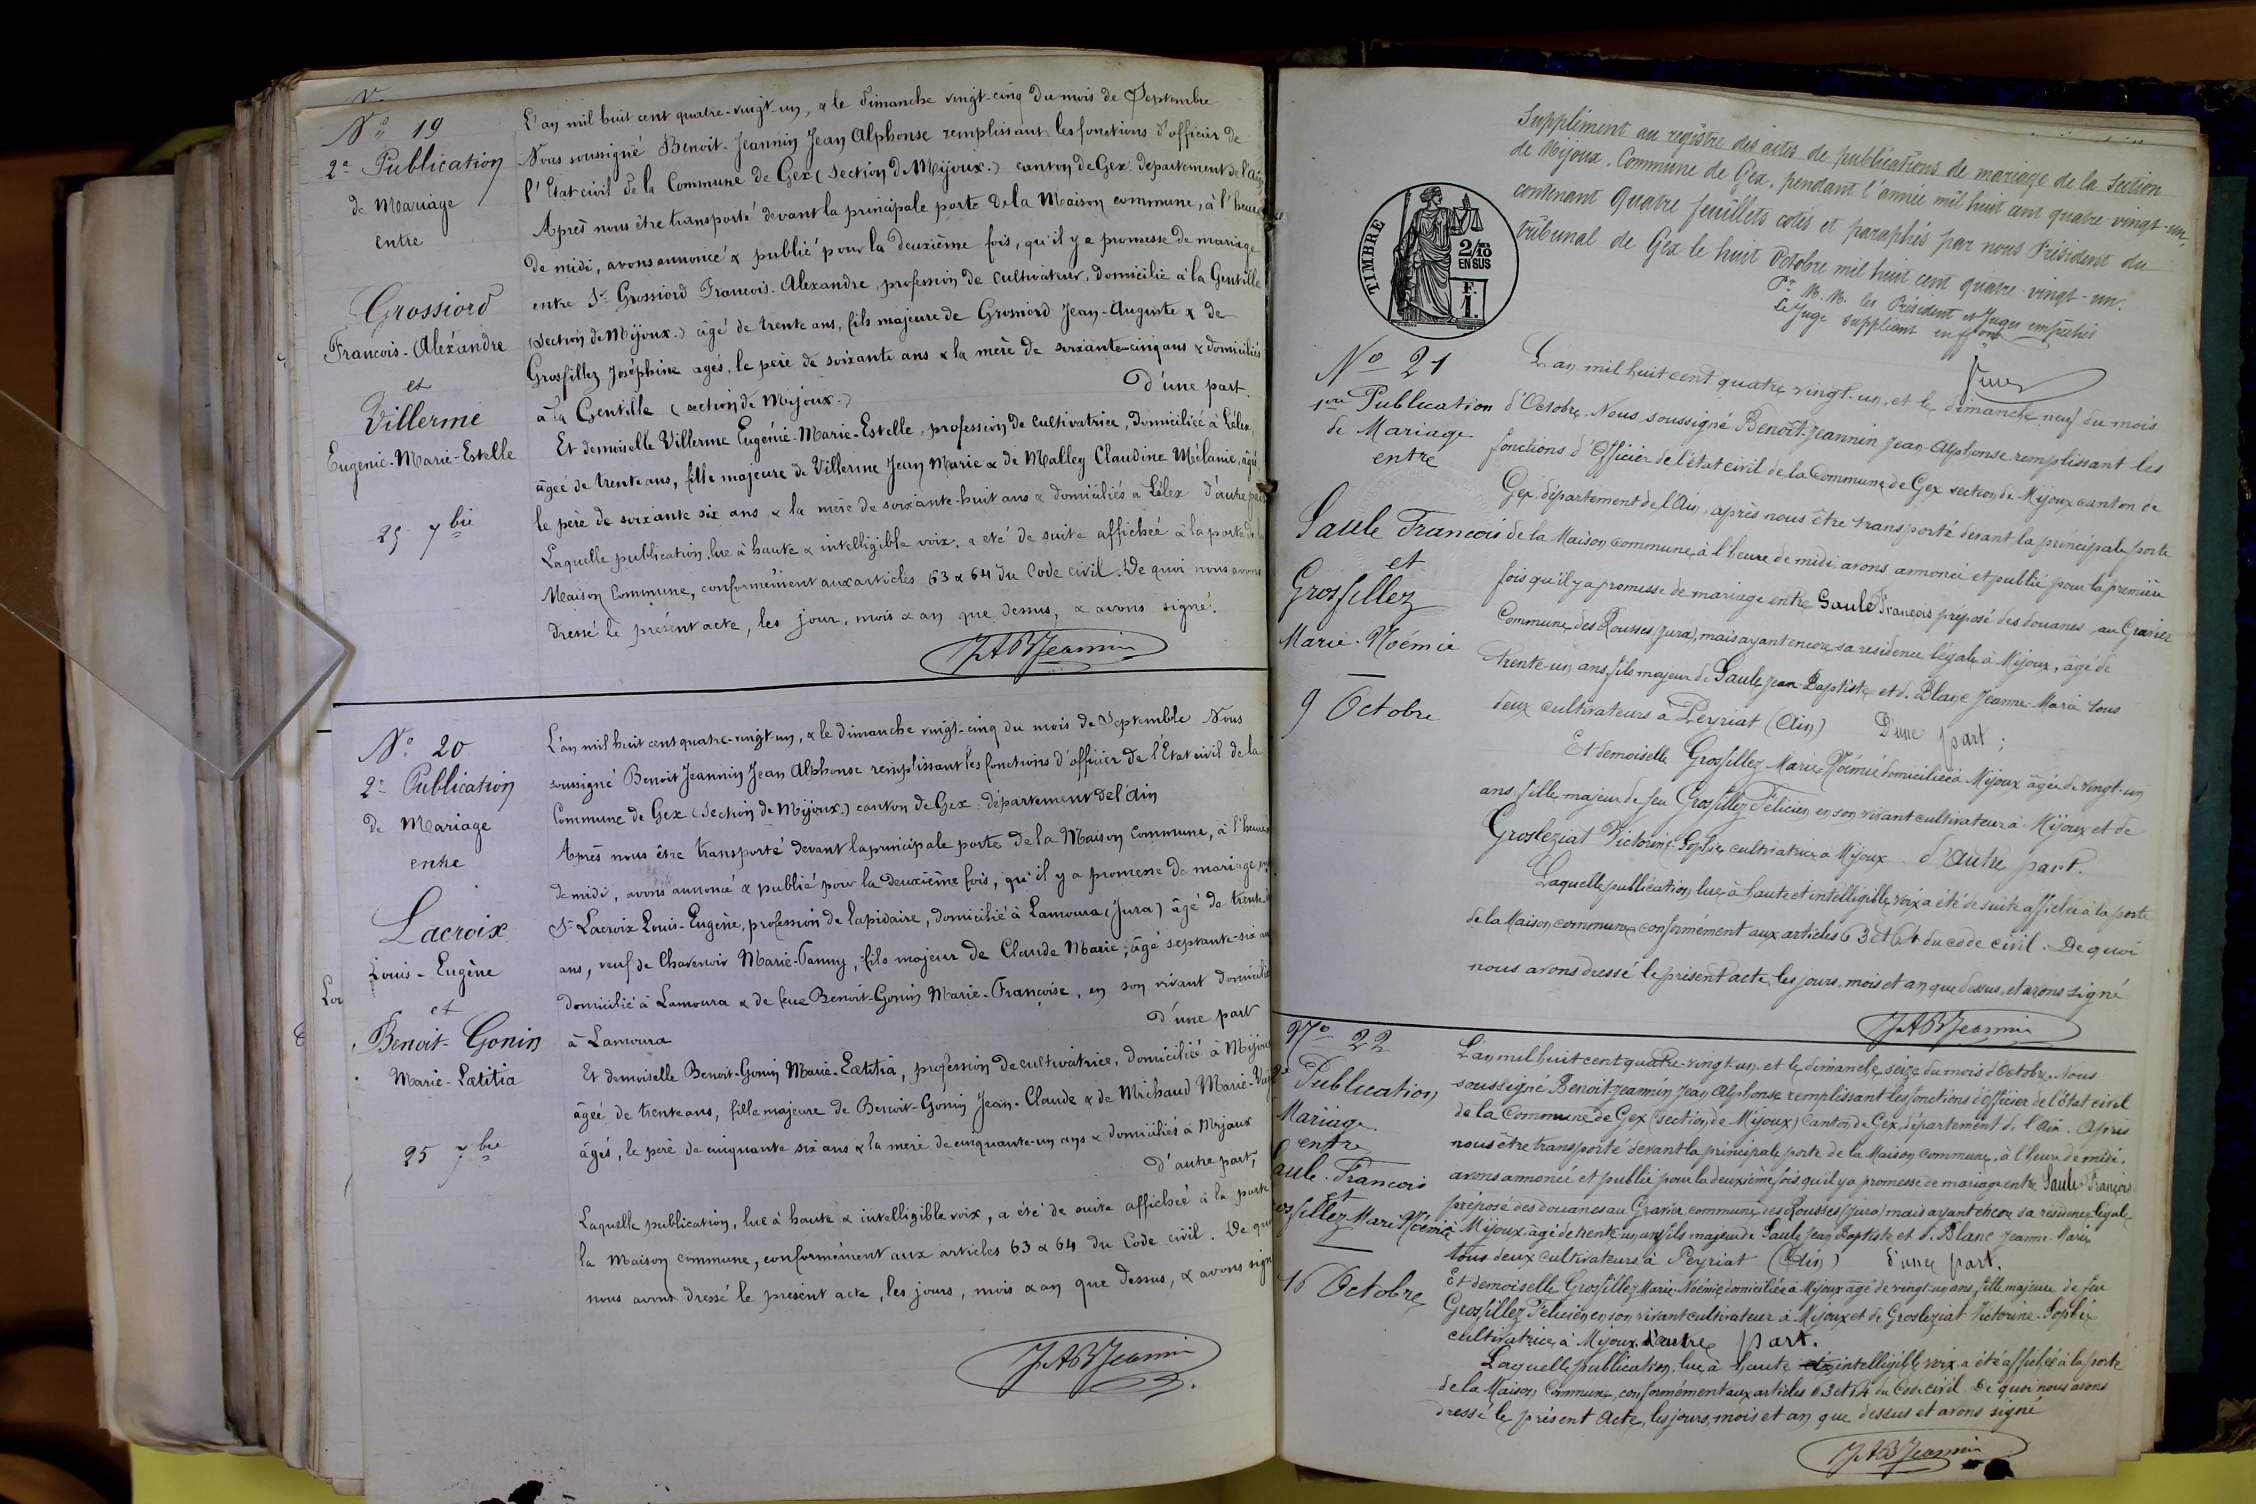 No 19
2e Publication
de Mariage
entre
Grossiord
François-Alexandre
et
Villerme
Eugenie-Marie-Estelle
25 7bre
L'an mil huit cent quatre-vingt-un, & le dimanche vingt-cinq du mois de Septembre
Nous soussigné Benoit-Jeannin Jean Alphonse remplissant les fonctions d'officier de
l'Etat civil de la Commune de Gex (Section de Mijoux.) canton de Gex département de l'Ain
Après nous être transporté devant la principale porte de la Maison commune, à l'heure
de midi, avons annoncé & publié pour la deuxième fois, qu'il y a promesse de mariage
entre Sr Grossiord François-Alexandre, profession de cultivateur, domicilié à la Gentille
(Section de Mijoux.) âgé de trente ans, fils majeure de Grossiord Jean-Auguste & de
Grosfillez Joséphine agés, le père de soixante ans & la mère de soixante-cinq ans & domiciliés
à la Gentille (section de Mijoux.) D'une part.
Et demoiselle Villerme Eugénie-Marie-Estelle, profession de cultivatrice, domiciliée à Lélex,
âgée de trente ans, fille majeure de Villerme Jean Marie & de Malley Claudine Mélanie, âgés
le père de soixante six ans & la mère de soixante-huit ans & domiciliés à Lélex d'autre part
Laquelle publication, lue à haute & intelligible voix, a été de suite affichée à la porte de la
Maison Commune, conformément aux articles 63 & 64 du Code civil. De quoi nous avons
dressé le présent acte, les jour, mois & an que dessus, & avons signé.
JABJeannin
No 20
2e Publication
de Mariage
entre
Lacroix
Louis-Eugène
et
Benoit-Gonin
Marie-Lætitia
25 7bre
L'an mil huit cent quatre-vingt-un, & le dimanche vingt-cinq du mois de Septemble Nous
soussigné Benoit Jeannin Jean Alphonse remplissant les fonctions d'officier de l'Etat civil de la
Commune de Gex (Section de Mijoux.) canton de Gex, département de l'Ain
Après nous être transporté devant la principale porte de la Maison Commune, à l'heure
de midi, avons annoncé & publié pour la deuxième fois, qu'il y a promesse de mariage
Sr Lacroix Louis-Eugène, profession de lapidaire, domicilié à Lamoura (Jura) âgé de trente
ans, veuf de Chavenoir Marie-Fanny, fils majeur de Claude Marie, âgé septante-six ans
domicilié à Lamoura & de feue Benoit-Gonin Marie-Françoise, en son vivant domicilié
à Lamoura D'une part
Et demoiselle Benoit-Gonin Marie-Lætitia, profession de cultivatrice, domiciliée à Mijoux
âgée de trente ans, fille majeure de Benoit-Gonin Jean-Claude & de Michaud Marie-
âgés, le père de cinquante six ans & la mère de cinquante-un ans & domiciliés à Mijoux
D'autre part,
Laquelle publication, lue à haute & intelligible voix, a été de suite affichée à la porte
la Maison commune, conformément aux articles 63 & 64 du Code civil. De quoi
nous avons dressé le présent acte, les jours, mois & an que dessus, & avons signé
JABJeannin
Supplément au registre des actes de publications de mariage de la Section
de Mijoux, Commune de Gex, pendant l'année mil huit cent quatre-vingt-un,
contenant quatre feuillets cotés et paraphés par nous Président du
tribunal de Gex le huit Octobre mil huit cent quatre vingt-un.
Pr M.M. les Président et Juges empêchés
Le Juge suppléant en
TIMBRE
2/10 EN SUS
F. 1.
No 21
1ere Publication
de Mariage
entre
Saule François
et
Grosfillez
Marie-Noémie
9 Octobre
L'an mil huit cent quatre vingt-un, et le dimanche neuf du mois
d'Octobre. Nous soussigné Benoît-Jeannin Jean-Alphonse remplissant les
fonctions d'Officier de l'état civil de la Commune de Gex section de Mijoux canton de
Gex, département de l'Ain, après nous être transporté devant la principale porte
de la Maison commune, à l'heure de midi, avons annoncé et publié pour la première
fois qu'il y a promesse de mariage entre Saule François préposé des douanes au Gravier
Commune des Rousses (Jura), mais ayant encore sa residence légale à Mijoux, âgé de
trente-un ans, fils majeur de Saule Jean-Baptiste et de Blanc Jeanne-Marie tous
deux cultivateurs à Peyriat (Ain) D'une part;
Et demoiselle Grosfillez Marie-Noémie domiciliée à Mijoux âgée de vingt-un
ans, fille majeur de feu Grosfillez Félicien en son vivant cultivateur à Mijoux et de
Grosleziat Victorine-Sophie cultivatrice à Mijoux d'autre part.
Laquelle publication lue à haute et intelligible voix a été de suite affichée à la porte
de la Maison commune conformément aux articles 63 et 64 du code civil. De quoi
nous avons dressé le présent acte, les jours, mois et an que dessus, et avons signé
JABJeannin
No 22
Publication
Mariage
entre
aule-François
et
osfillez Marie Noémie
16 Octobre
L'an mil huit cent quatre-vingt-un, et le dimanche seize du mois d'Octobre. Nous
soussigné Benoît-Jeannin Jean Alphonse remplissant les fonctions d'Officier de l'état civil
de la Commune de Gex (section de Mijoux) Canton de Gex, département de l'Ain. Après
nous être transporté devant la principale porte de la Maison commune, à l'heure de midi,
avons annoncé et publié pour la deuxième fois qu'il y a promesse de mariage entre Saule François
préposé des douanes au Gravier commune des Rousses (Jura) mais ayant encore sa résidence légale
à Mijoux, âgé de trente-un ans fils majeur de Saule Jean Baptiste et de Blanc Jeanne-Marie
tous deux cultivateurs à Peyriat (Ain) d'une part.
Et demoiselle Grosfillez Marie-Noémie domiciliée à Mijoux âgé de vingt-un ans, fille majeure de feu
Grosfillez Félicien en son vivant cultivateur à Mijoux et de Grosleziat Victorine-Sophie
cultivatrice à Mijoux d'autre part.
Laquelle publication, lue à haute intelligible voix a été affichée à la porte
de la Maison Commune, conformément aux articles 63 et 64 du Code civil. De quoi nous avons
dressé le présent Acte, les jours, mois et an que dessus et avons signé
JABJeannin